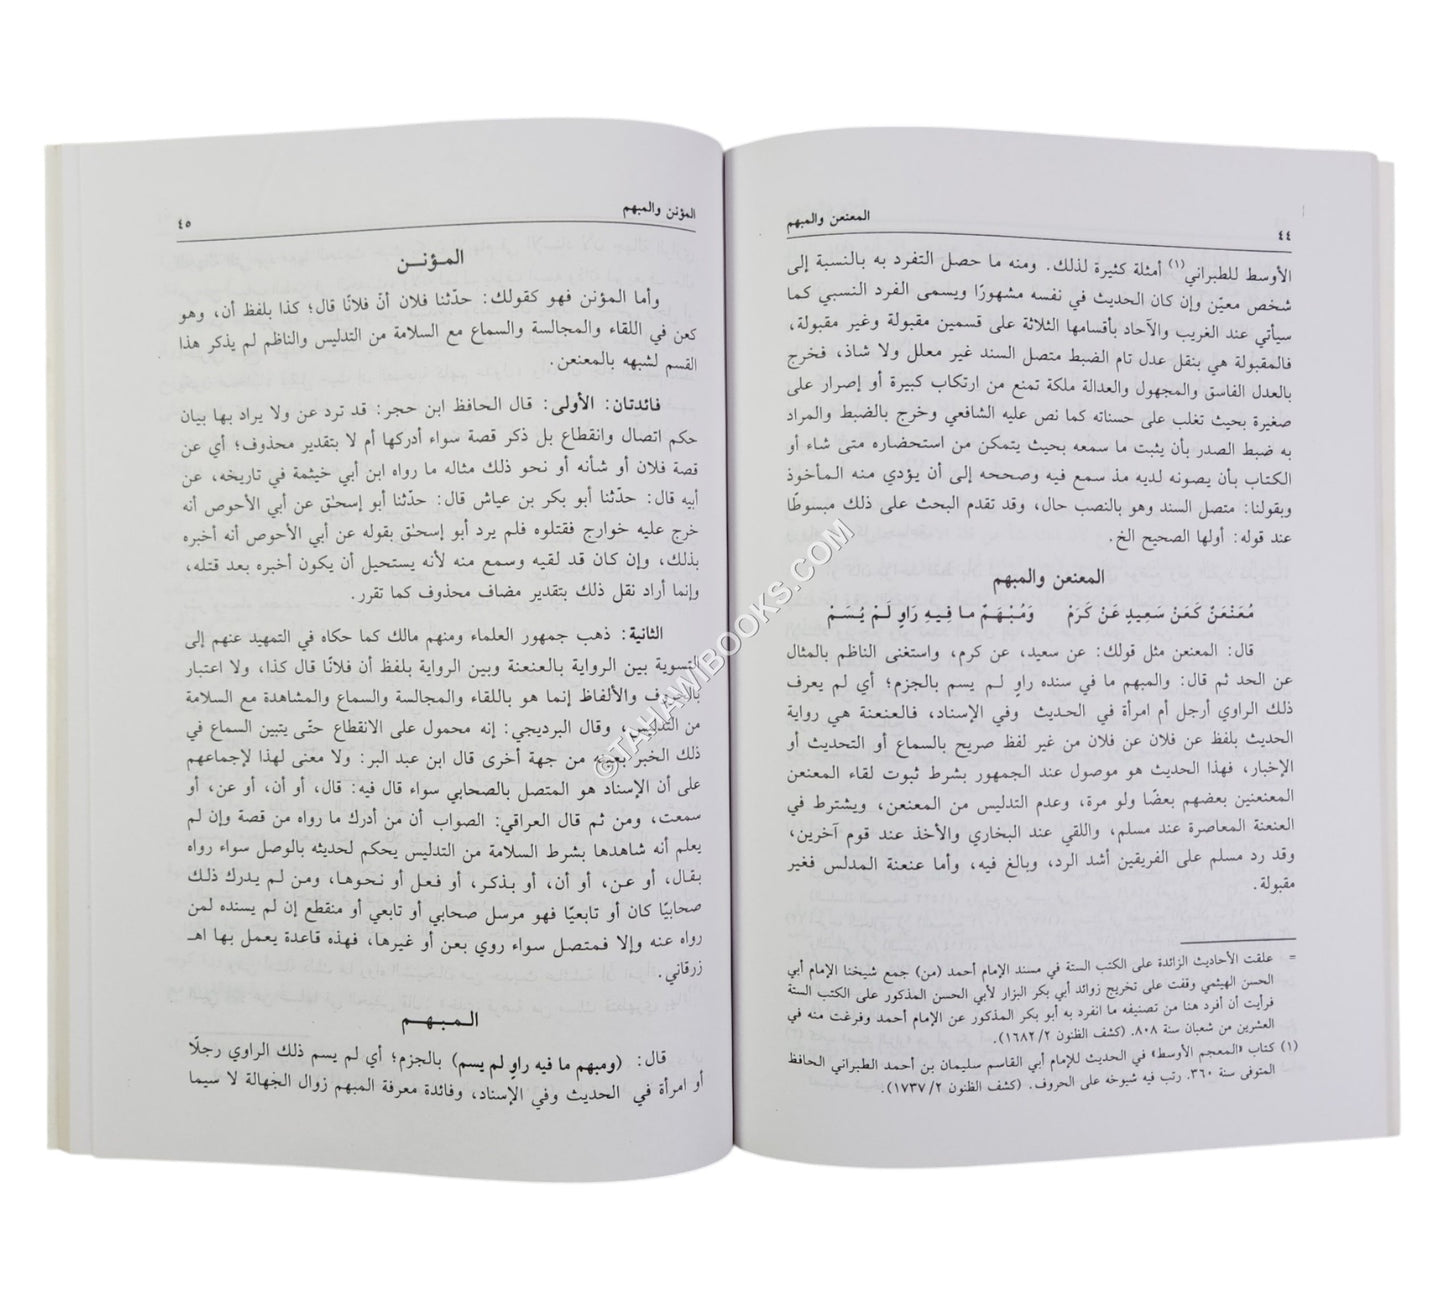 ٤٤
المعنعن والمبهم
الأوسط للطبراني(١) أمثلة كثيرة لذلك. ومنه ما حصل التفرد به بالنسبة إلى
شخص معيّن وإن كان الحديث في نفسه مشهورًا ويسمى الفرد النسبي كما
سيأتي عند الغريب والآحاد بأقسامها الثلاثة على قسمين مقبولة وغير مقبولة،
فالمقبولة هي بنقل عدل تام الضبط متصل السند غير معلل ولا شاذ، فخرج
بالعدل الفاسق والمجهول والعدالة ملكة تمنع من ارتكاب كبيرة أو إصرار على
صغيرة بحيث تغلب على حسناته كما نص عليه الشافعي وخرج بالضبط والمراد
به ضبط الصدر بأن يثبت ما سمعه بحيث يتمكن من استحضاره متى شاء أو
الكتاب بأن يصونه لديه مذ سمع فيه وصححه إلى أن يؤدي منه المأخوذ
وبقولنا: متصل السند وهو بالنصب حال، وقد تقدم البحث على ذلك مبسوطًا
عند قوله: أولها الصحيح الخ.
المعنعن والمبهم
مُعَنْعَنٌ كَعَنْ سَعِيدٍ عَنْ كَرَمْ وَمُبْهَمٌ ما فِيهِ رَاوٍ لَمْ يُسَمْ
قال: المعنعن مثل قولك: عن سعيد، عن كرم، واستغنى الناظم بالمثال
عن الحد ثم قال: والمبهم ما في سنده راوٍ لم يسم بالجزم؛ أي لم يعرف
ذلك الراوي أرجل أم امرأة في الحديث وفي الإسناد، فالعنعنة هي رواية
الحديث بلفظ عن فلان عن فلان من غير لفظ صريح بالسماع أو التحديث أو
الإخبار، فهذا الحديث هو موصول عند الجمهور بشرط ثبوت لقاء المعنعن
المعنعنين بعضهم بعضًا ولو مرة، وعدم التدليس من المعنعن، ويشترط في
العنعنة المعاصرة عند مسلم، واللقي عند البخاري والأخذ عند قوم آخرين،
وقد رد مسلم على الفريقين أشد الرد، وبالغ فيه، وأما عنعنة المدلس فغير
مقبولة.
= علقت الأحاديث الزائدة على الكتب الستة في مسند الإمام أحمد (من) جمع شيخنا الإمام أبي
الحسن الهيثمي وقفت على تخريج زوائد أبي بكر البزار لأبي الحسن المذكور على الكتب الستة
فرأيت أن أفرد هنا من تصنيفه ما انفرد به أبو بكر المذكور عن الإمام أحمد وفرغت منه في
العشرين من شعبان سنة ٨٠٨. (كشف الظنون ٢/ ١٦٨٢).
(١) كتاب «المعجم الأوسط» في الحديث للإمام أبي القاسم سليمان بن أحمد الطبراني الحافظ
المتوفى سنة ٣٦٠. رتب فيه شيوخه على الحروف. (كشف الظنون ٢/ ١٧٣٧).
المؤنن والمبهم
٤٥
المؤنن
وأما المؤنن فهو كقولك: حدّثنا فلان أنّ فلانًا قال؛ كذا بلفظ أن، وهو
كعن في اللقاء والمجالسة والسماع مع السلامة من التدليس والناظم لم يذكر هذا
القسم لشبهه بالمعنعن.
فائدتان: الأولى: قال الحافظ ابن حجر: قد ترد عن ولا يراد بها بيان
حكم اتصال وانقطاع بل ذكر قصة سواء أدركها أم لا بتقدير محذوف؛ أي عن
قصة فلان أو شأنه أو نحو ذلك مثاله ما رواه ابن أبي خيثمة في تاريخه، عن
أبيه قال: حدّثنا أبو بكر بن عياش قال: حدّثنا أبو إسحٰق عن أبي الأحوص أنه
خرج عليه خوارج فقتلوه فلم يرد أبو إسحٰق بقوله عن أبي الأحوص أنه أخبره
بذلك، وإن كان قد لقيه وسمع منه لأنه يستحيل أن يكون أخبره بعد قتله،
وإنما أراد نقل ذلك بتقدير مضاف محذوف كما تقرر.
الثانية: ذهب جمهور العلماء ومنهم مالك كما حكاه في التمهيد عنهم إلى
التسوية بين الرواية بالعنعنة وبين الرواية بلفظ أن فلانًا قال كذا، ولا اعتبار
بالحروف والألفاظ إنما هو باللقاء والمجالسة والسماع والمشاهدة مع السلامة
من التدليس، وقال البرديجي: إنه محمول على الانقطاع حتّى يتبين السماع في
ذلك الخبر بعينه من جهة أخرى قال ابن عبد البر: ولا معنى لهذا لإجماعهم
على أن الإسناد هو المتصل بالصحابي سواء قال فيه: قال، أو أن، أو عن، أو
سمعت، ومن ثم قال العراقي: الصواب أن من أدرك ما رواه من قصة وإن لم
يعلم أنه شاهدها بشرط السلامة من التدليس يحكم لحديثه بالوصل سواء رواه
بقال، أو عن، أو أن، أو بذكر، أو فعل أو نحوها، ومن لم يدرك ذلك
صحابيًا كان أو تابعيًا فهو مرسل صحابي أو تابعي أو منقطع إن لم يسنده لمن
رواه عنه وإلا فمتصل سواء روي بعن أو غيرها، فهذه قاعدة يعمل بها اهـ
زرقاني.
المبهم
قال: (ومبهم ما فيه راوٍ لم يسم) بالجزم؛ أي لم يسم ذلك الراوي رجلًا
أو امرأة في الحديث وفي الإسناد، وفائدة معرفة المبهم زوال الجهالة لا سيما
©TAHAWIBOOKS.COM